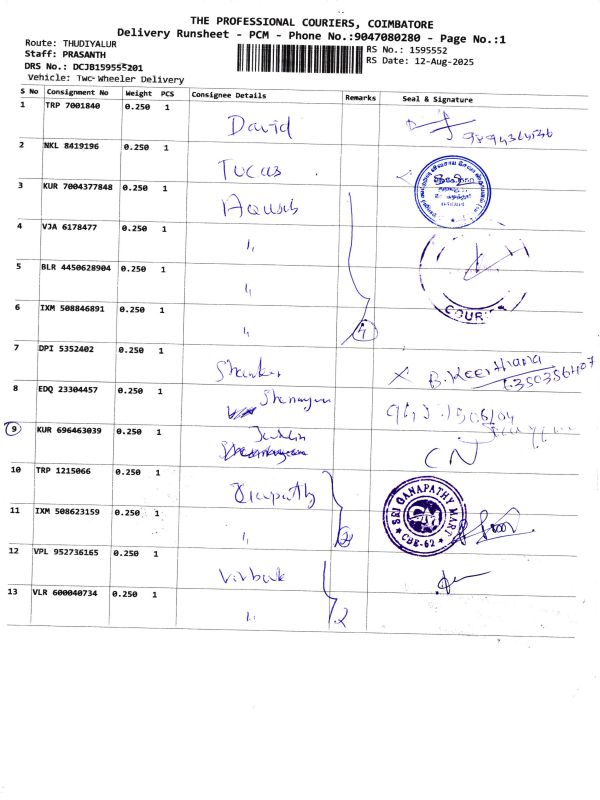 THE PROFESSIONAL COURIERS, COIMBATORE
Delivery Runsheet - PCM - Phone No.:9047080280 - Page No.:1
Route: THUDIYALUR
RS No.: 1595552
Staff: PRASANTH
RS Date: 12-Aug-2025
DRS No.: DCJB159555201
Vehicle: Two-Wheeler Delivery
S No Consignment No Weight PCS Consignee Details Remarks Seal & Signature
1 TRP 7001840 0.250 1 David
2 NKL 8419196 0.250 1
3 KUR 7004377848 0.250 1
4 VJA 6178477 0.250 1 "
5 BLR 4450628904 0.250 1 "
6 IXM 508846891 0.250 1 " 4
COURI
7 DPI 5352402 0.250 1 B. Keerthana
8 EDQ 23304457 0.250 1
9 KUR 696463039 0.250 1 CN
10 TRP 1215066 0.250 1
SRI GANAPATHY MART
CBE-62
11 IXM 508623159 0.250 1 " 2
12 VPL 952736165 0.250 1
13 VLR 600040734 0.250 1 " 2